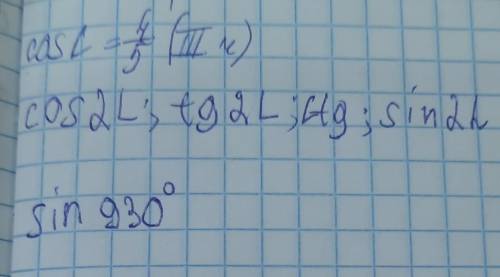 cos L = 4/5 (III к)
cos2L; tg2L; ctg; sin2L
sin 930°